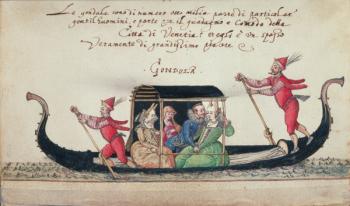 Le gondole sono di numero otto milia parte di particolar
gentilhuomini, e parte per il guadagno e Comodo della
Città di Venetia, et egli è un spasso
Veramente di grandissimo piacere
GONDOLA.